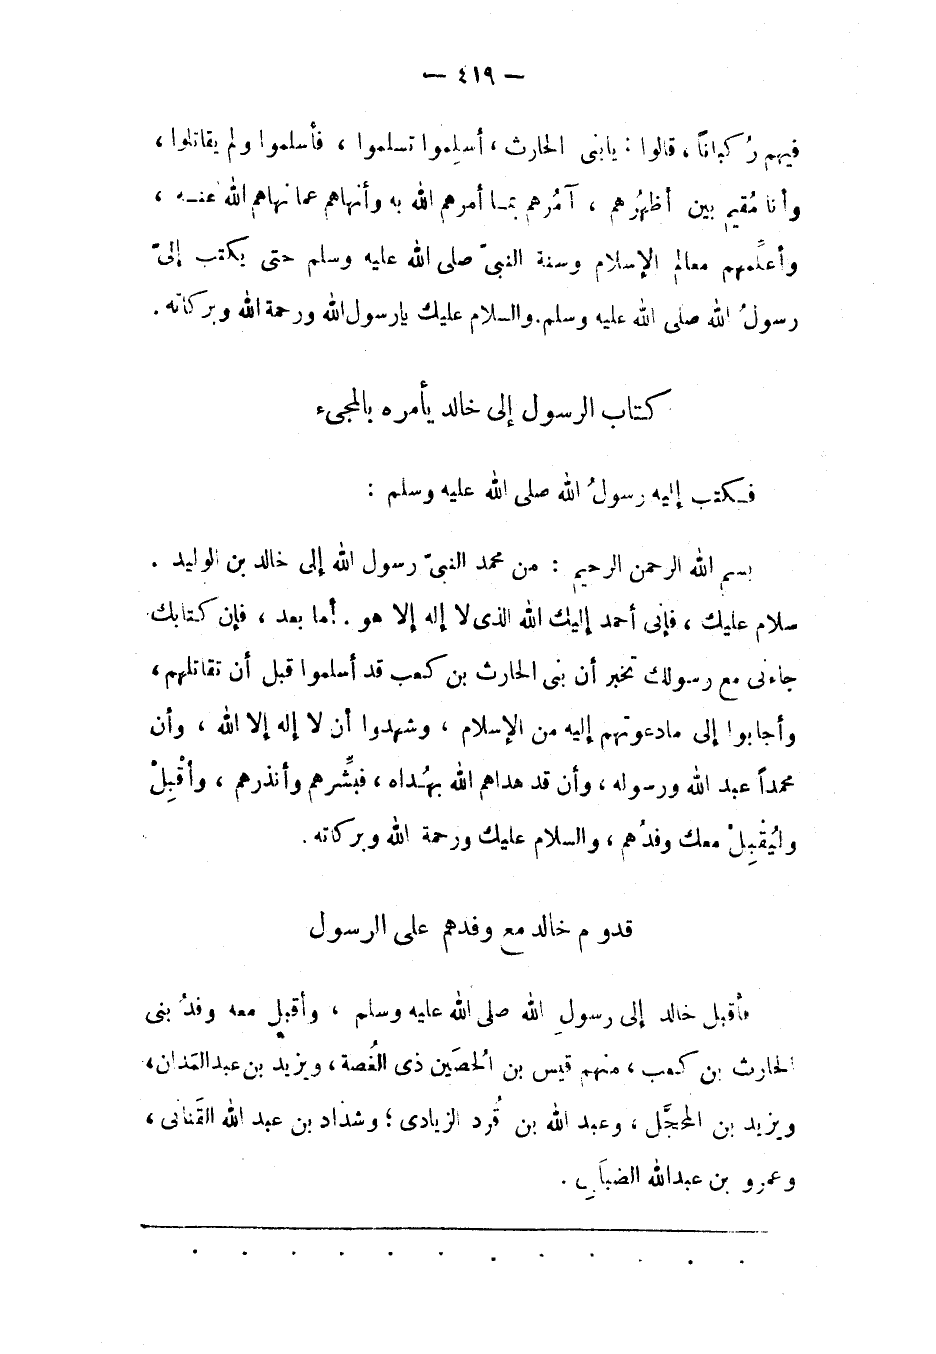 — ٤١٩ —
فيهم رُكباناً ، قالوا : يابنى الحارث ، أسلِموا تسلموا ، فأسلموا ولم يقاتلوا ،
وأنا مُقيم بين أظهُرهم ، آمُرهم بمـا أمرهم الله به وأنهاهم عما نهاهم الله عنـه ،
وأعلِّمهم معالم الإسلام وسنة النبىّ صلى الله عليه وسلم حتى يكتب إلىّ
رسولُ الله صلى الله عليه وسلم. والسلام عليك يارسول الله ورحمة الله وبركاته .
كتاب الرسول إلى خالد يأمره بالمجىء
فـكتب إليه رسولُ الله صلى الله عليه وسلم :
بسم الله الرحمن الرحيم : من محمد النبىّ رسول الله إلى خالد بن الوليد .
سلام عليك ، فإنى أحمد إليك الله الذى لا إله إلا هو . أما بعد ، فإن كتابك
جاءنى مع رسولك تخبر أن بنى الحارث بن كعب قد أسلموا قبل أن تقاتلهم ،
وأجابوا إلى مادعوتهم إليه من الإسلام ، وشهدوا أن لا إله إلا الله ، وأن
محمداً عبد الله ورسوله ، وأن قد هداهم الله بهُـداه ، فبشِّرهم وأنذرهم ، وأقْبِلْ
وليُقْبِلْ معك وفدُهم ، والسلام عليك ورحمة الله وبركاته .
قدوم خالد مع وفدهم على الرسول
فأقبل خالد إلى رسولِ الله صلى الله عليه وسلم ، وأقبل معه وفدُ بنى
الحارث بن كعب ، منهم قيس بن الُحصَين ذى الغُصة ، ويزيد بن عبد المَدان ،
ويزيد بن المحجَّل ، وعبد الله بن قُرد الزيادى ؛ وشداد بن عبد الله القَنانى ،
وعمرو بن عبدالله الضبابى .